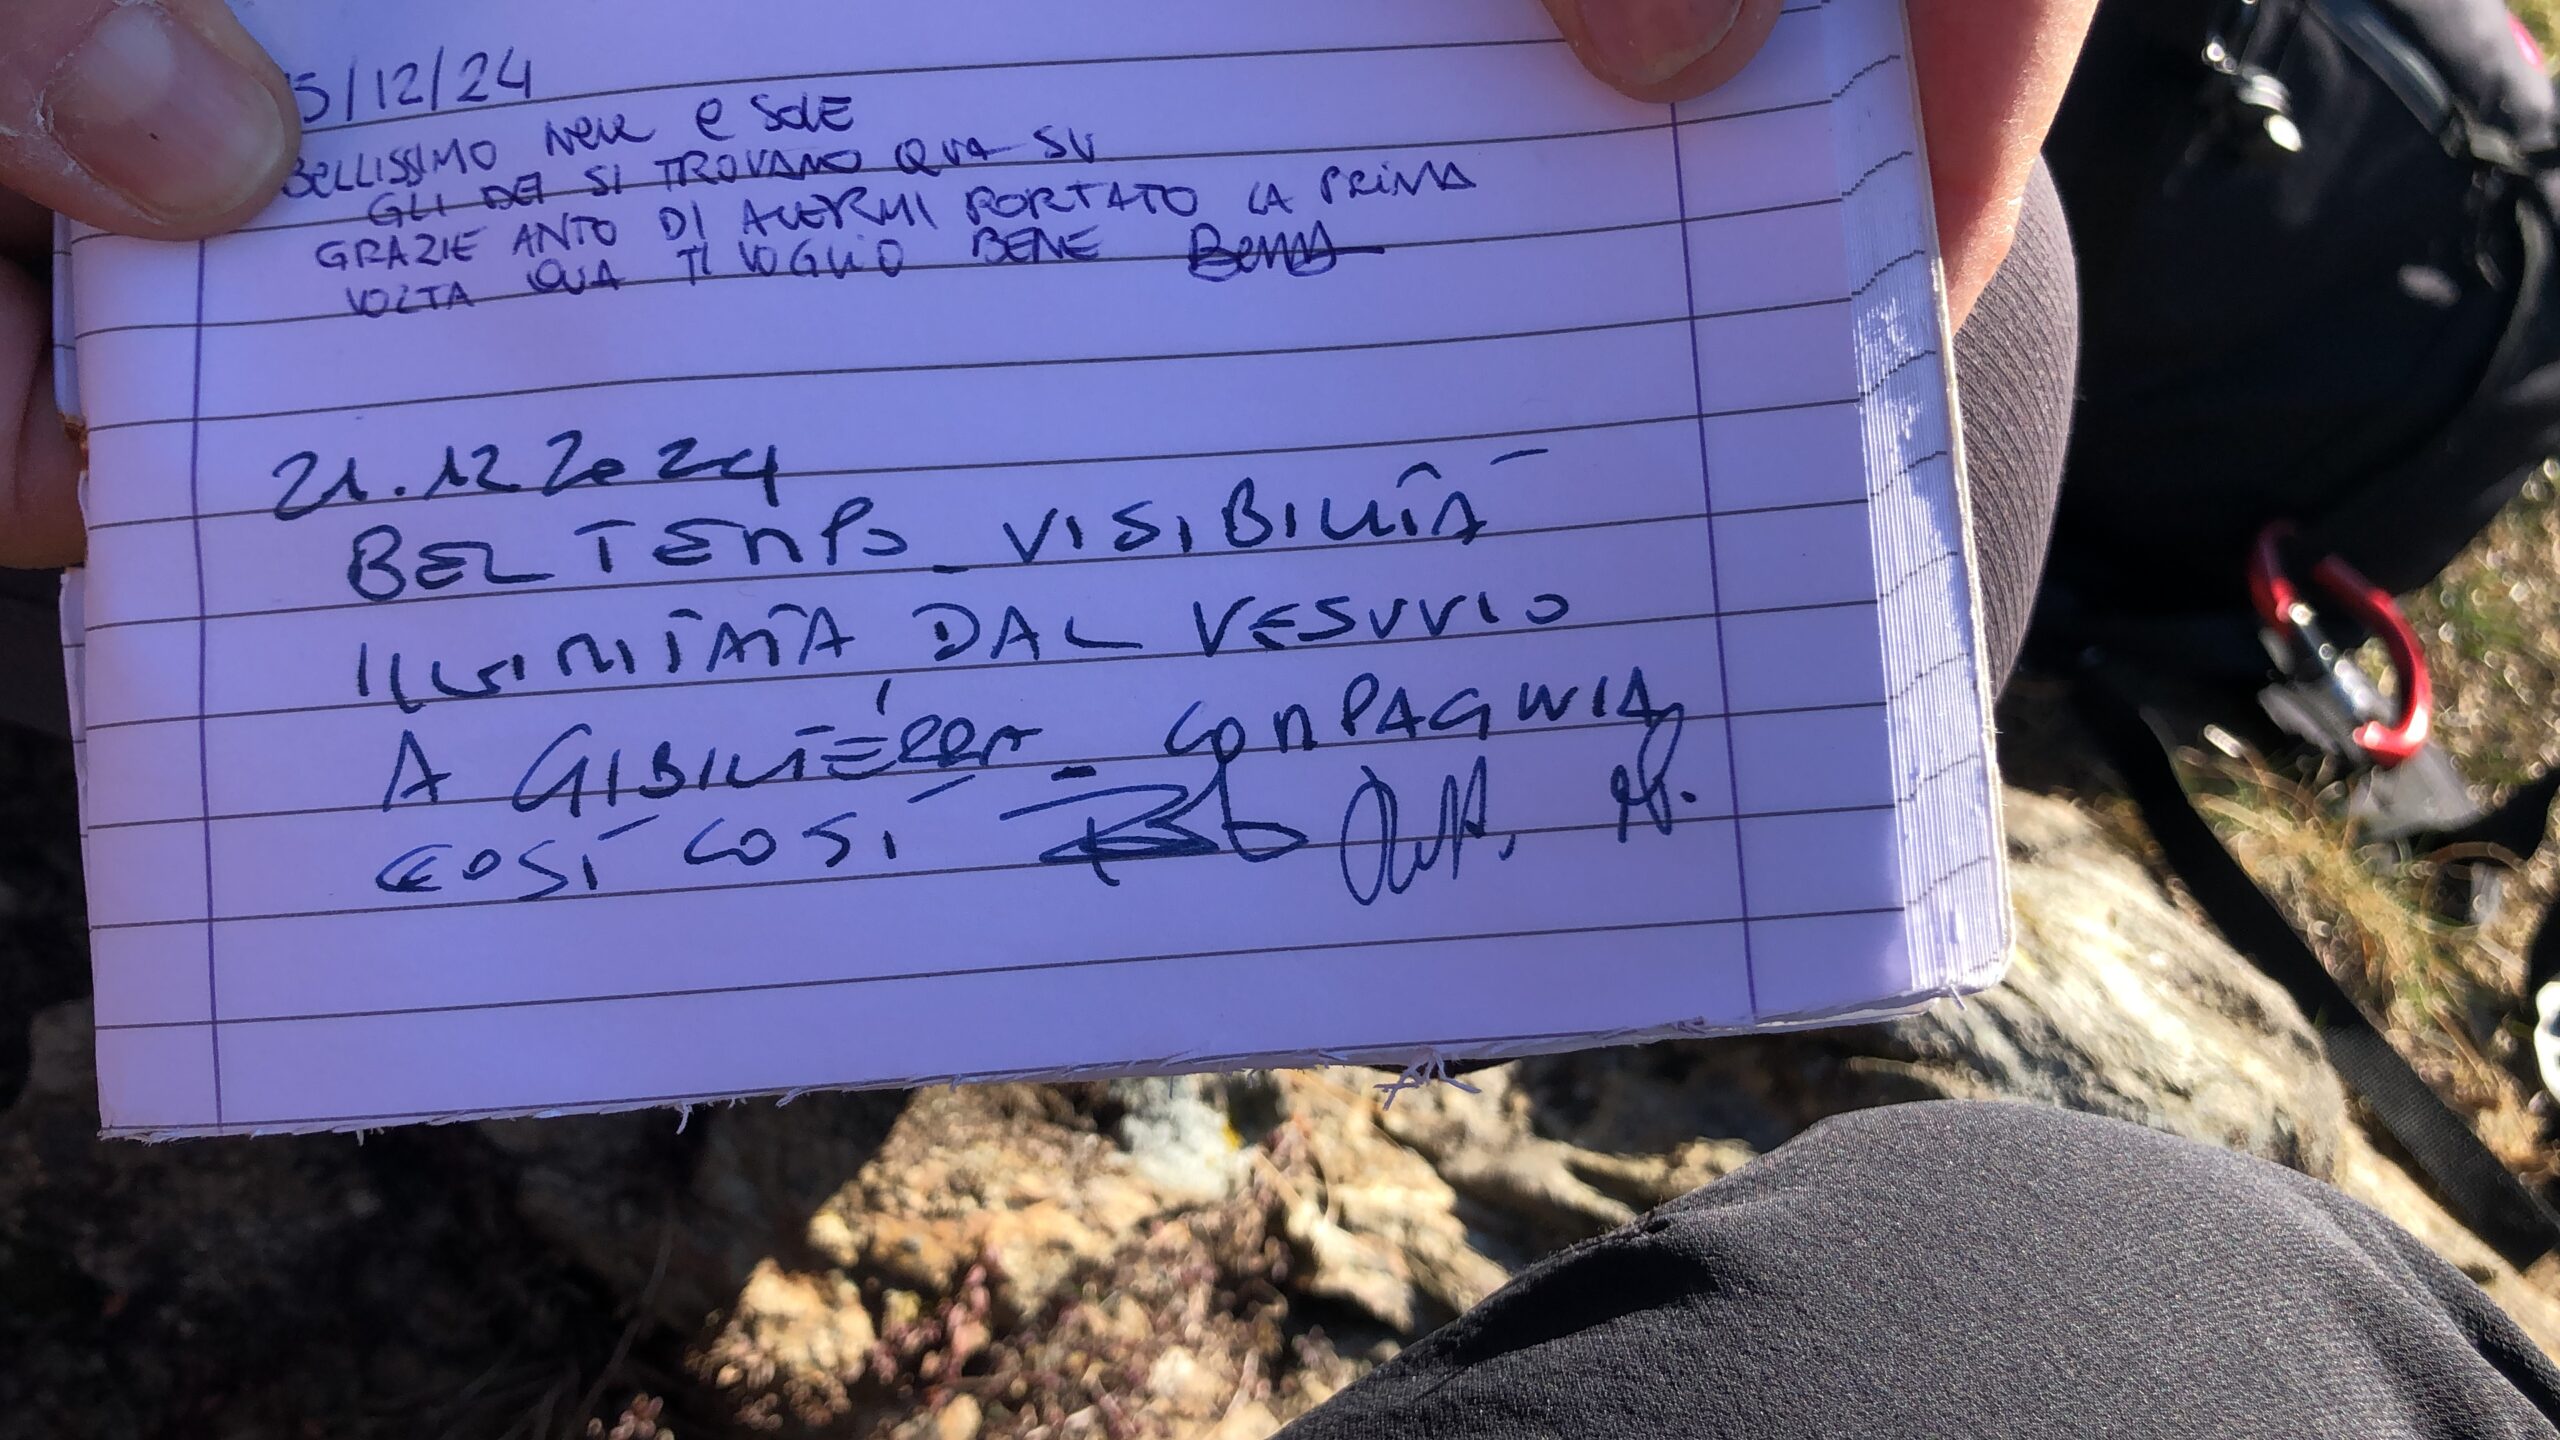 5/12/24
BELLISSIMO NEVE e SOLE
GLI DEI SI TROVANO QUA SU
GRAZIE ANTO DI AVERMI PORTATO LA PRIMA
VOLTA QUA TI VOGLIO BENE
21.12 2024
BEL TEMPO_VISIBILITÀ
ILLIMITATA DAL VESUVIO
A GIBILTERRA_COMPAGNIA
COSÌ COSÌ